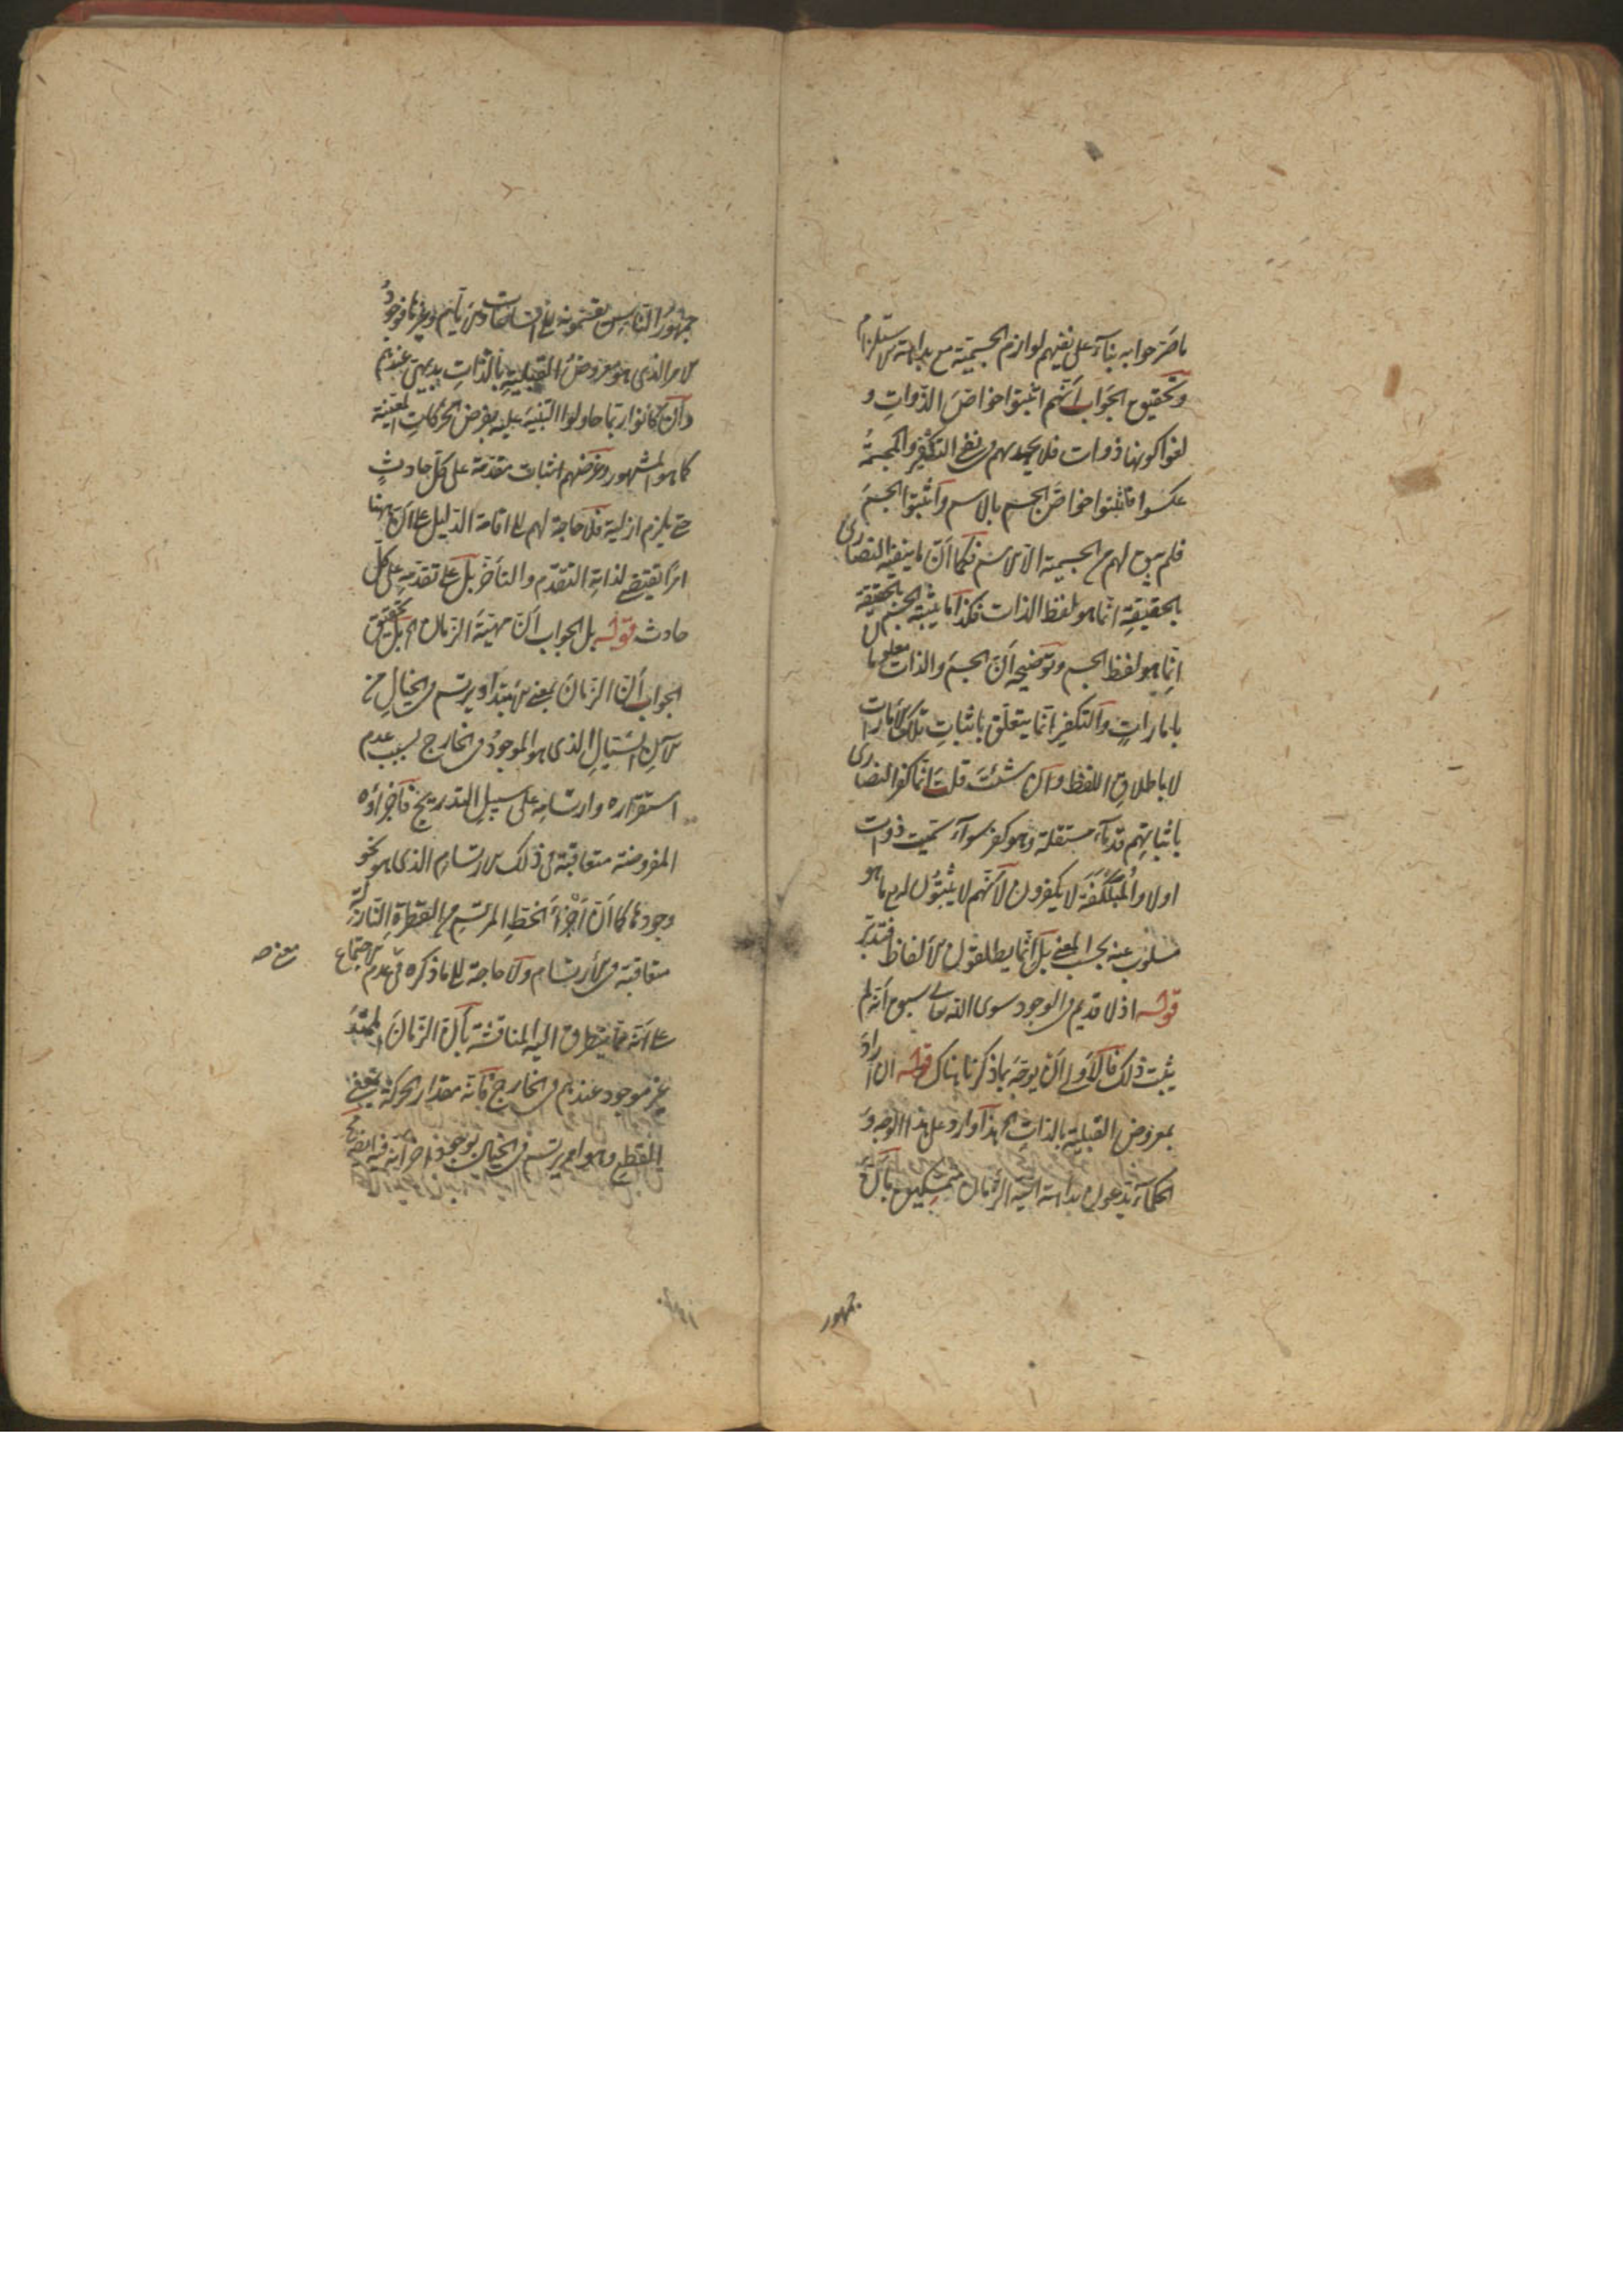 ما صرحوا به بناء على نفيهم لوازم الجسمية مع بداهة الاستلزام
وتحقيق الجواب أنهم اثبتوا خواص الذوات و
لغوا كونها ذوات فلا يجديهم في نفي التكفير والمجسمة
عكسوا فاثبتوا خواص الجسم بالاسم وأثبتوا الجسم
فلم يبق لهم من الجسمية الا الاسم فكما أن ما ينفيه النصارى
بالحقيقة انما هو لفظ الذات فكذا ما يثبته بالحقيقة
انما هو لفظ الجسم وتوضيحه أن الجسم والذات معلومان
بامارات والتكفير انما يتعلق باثبات تلك الأمارات
لا باطلاق اللفظ وان شئت قلت انما كفر النصارى
باثباتهم قدماء مستقلة وهو كفر سواء سميت ذوات
اولا والمبلكفة لا يكفرون لأنهم لا يثبتون له ما هو
مسلوب عنه بحسب المعنى بل انما يطلقون الألفاظ فتدبر
قوله اذ لا قديم في الوجود سوى الله تعالى سبق أنه لم
يثبت ذلك فالأولى أن يوجه بما ذكرنا هناك قوله ان اراد
بمعروض القبلية بالذات الخ هذا وارد على هذا الوجه و
الحكماء يدعون بداهة انية الزمان متمسكين بأن
جمهور
جمهور الناس يقسمونه إلى الساعات والأيام وغيرها فوجود
الامر الذي هو معروض القبلية بالذات بديهي عندهم
وان كانوا ربما حاولوا التنبيه عليه بفرض الحركات المعينة
كما هو المشهور وغرضهم اثبات متقدمة على كل حادث
حتى يلزم ازلية فلا حاجة لهم إلى اقامة الدليل على أن ههنا
امرا يقتضي لذاته التقدم والتأخر بل على تقدمه على كل
حادث قوله بل الجواب أن مهية الزمان الخ بل تحقيق
الجواب أن الزمان بمعنى الامتداد يرتسم في الخيال من
الآن السيال الذي هو الموجود في الخارج بسبب عدم
استقراره وارتسامه على سبيل التدريج فأجزاؤه
المفروضة متعاقبة في ذلك الارتسام الذي هو نحو
وجودها كما أن أجزاء الخط المرتسم من القطرة النازلة
متعاقبة في الأرتسام ولا حاجة إلى ما ذكره في عدم الاجتماع
على أنه مما يتطرق اليه المناقشة بأن الزمان الممتد
غير موجود عندهم في الخارج فانه مقدار الحركة بمعنى
القطع وهو امر يرتسم في الخيال بوجود اجزائه فيه